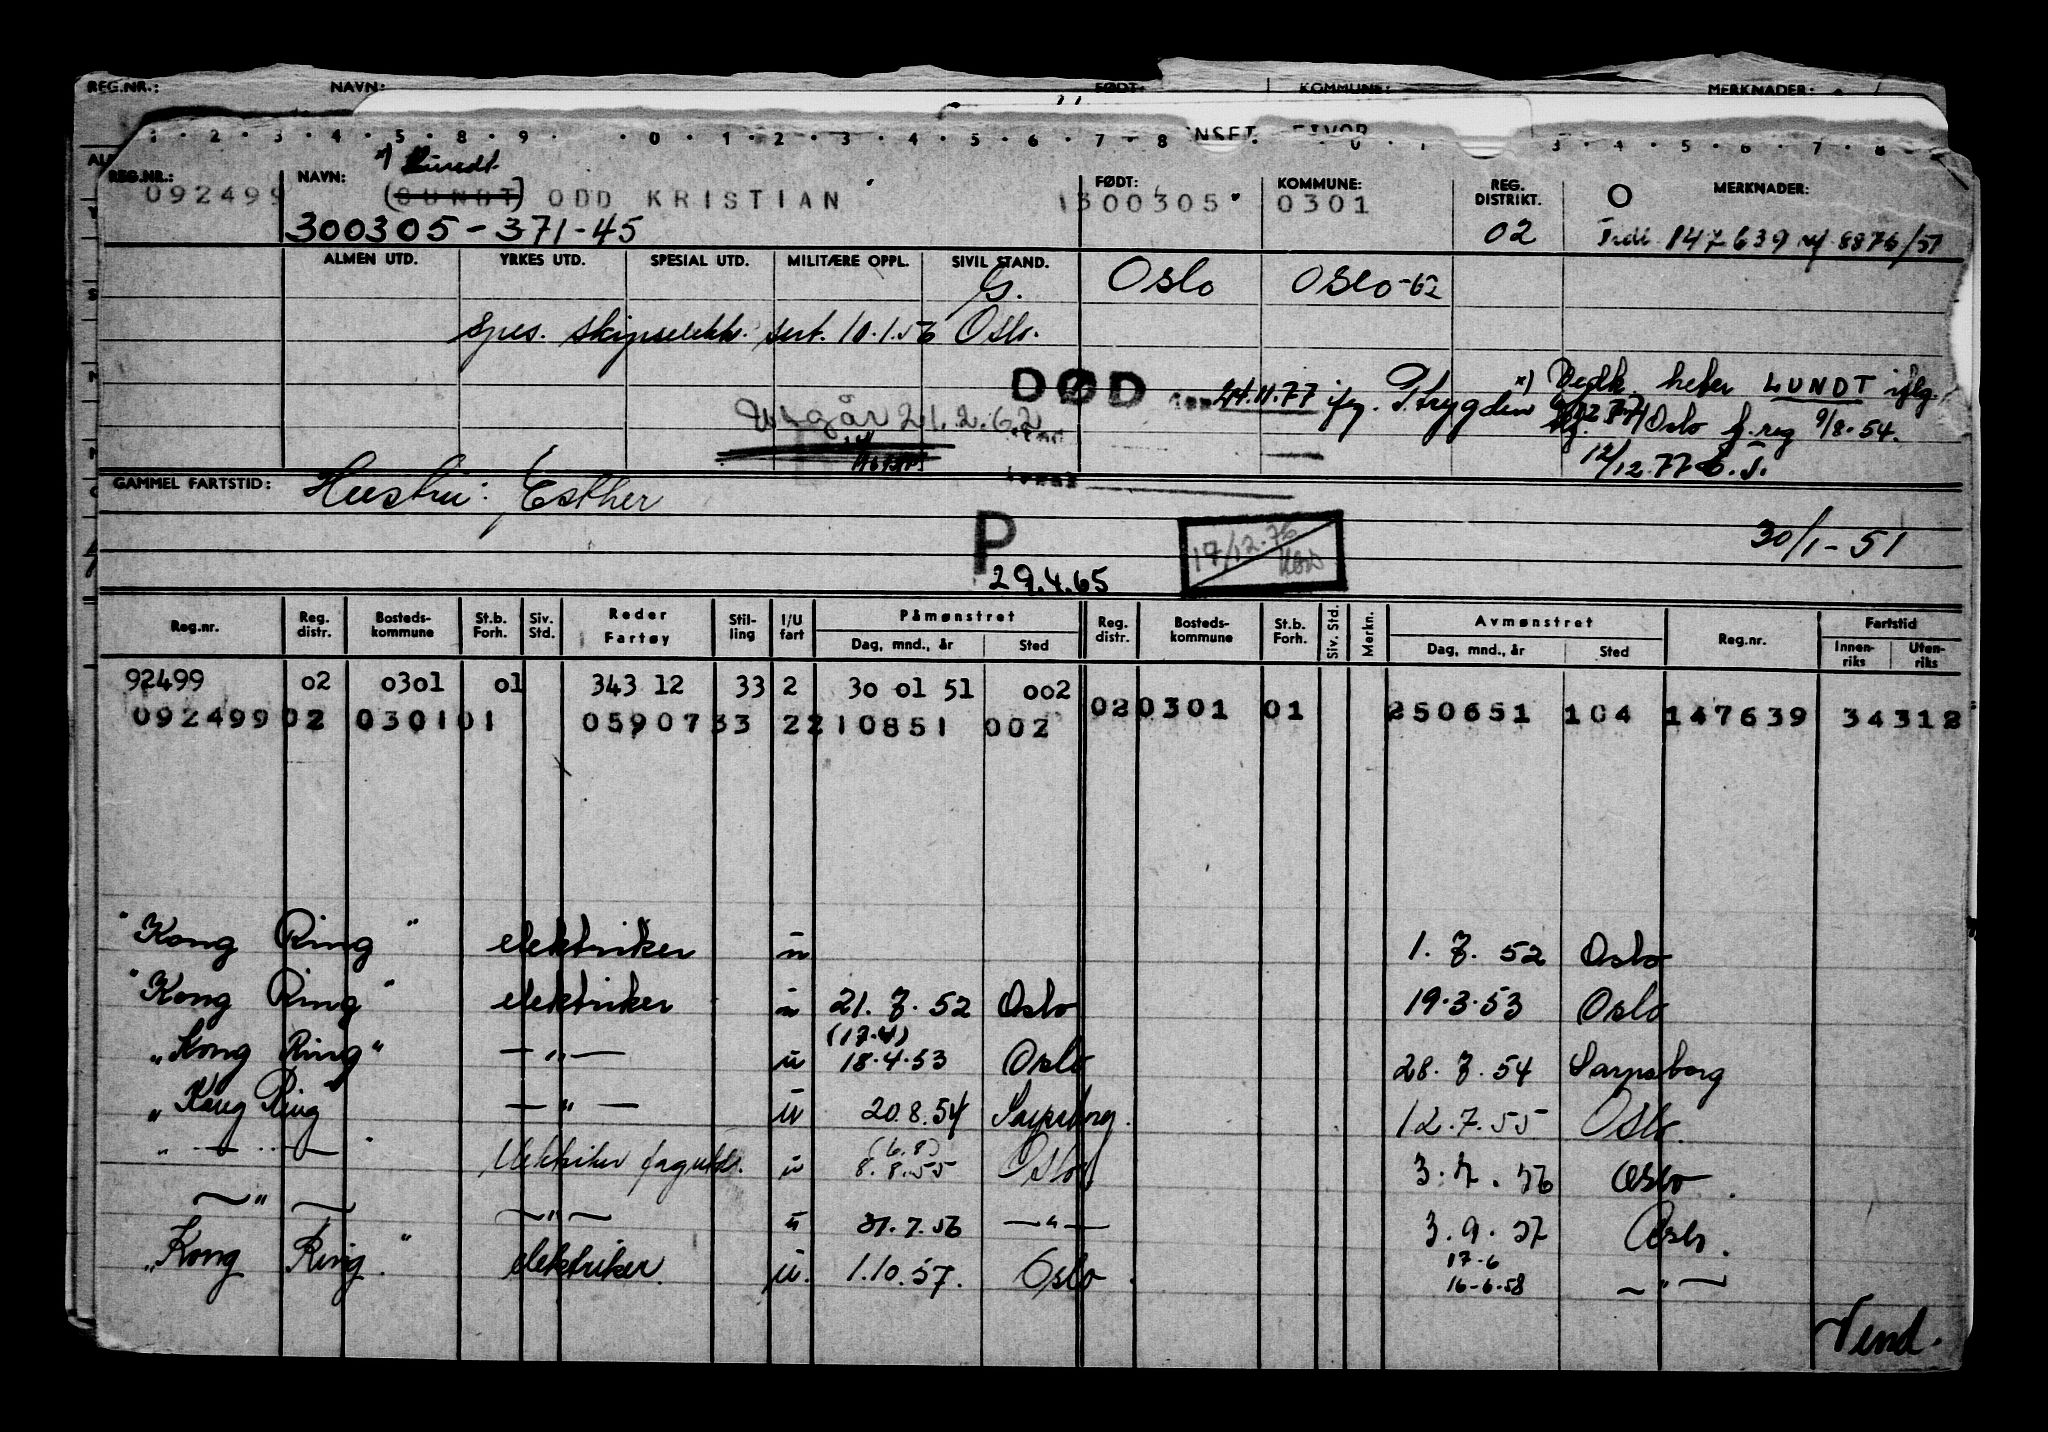 REG.NR.: NAVN: FØDT: KOMMUNE: MERKNADER:
1 · 2 · 3 · 4 · 5 · 8 · 9 · · 0 · 1 · 2 · 3 · 4 · 5 · 6 · 7 · 8
x) Lundt
REG.NR.: NAVN: FØDT: KOMMUNE: REG. DISTRIKT. O MERKNADER:
092499 (SUNDT) ODD KRISTIAN 300305 0301
300305-371-45 02 Tidl 147639 8876/51
ALMEN UTD. YRKES UTD. SPESIAL UTD. MILITÆRE OPPL. SIVIL STAND.
G. Oslo Oslo-62
spes. skipselektr. sert. 10.1.56 Oslo.
DØD 24.11.77 ifg. P.trygden
x) Vedk. heter LUNDT iflg.
Oslo f.reg 9/8-54.
Utgår 21.2.62
12/12.77
GAMMEL FARTSTID: Hustru: Esther
P 17/12.75 30/1-51
29.4.65
Reg.nr. Reg. distr. Bosteds-kommune St.b. Forh. Siv. Std. Reder Fartøy Stil-ling I/U fart Påmønstret Reg. distr. Bosteds-kommune St.b. Forh. Siv. Std. Merkn. Avmønstret Reg.nr. Fartstid
Dag, mnd., år Sted Dag, mnd., år Sted Innen-riks Uten-riks
92499 02 0301 01 343 12 33 2 30 01 51 002
092499 02 0301 01 05907 33 2 210851 002 02 0301 01 250651 104 147639 34312
"Kong Ring" elektriker u 1. 7. 52 Oslo
"Kong Ring" elektriker u 21. 7. 52 Oslo 19.3.53 Oslo
(17.4)
"Kong Ring" — " — u 18.4.53 Oslo 28. 7. 54 Sarpsborg
"Kong Ring" — " — u 20.8.54 Sarpsborg. 12.7.55 Oslo.
(6.8)
" — " — " Elektriker fagutd. u 8.8.55 Oslo 3.7.56 Oslo.
— " — — " — u 31.7.56 — " — 3.9.57 Oslo.
17-6
"Kong Ring." elektriker. u. 1.10.57. Oslo. 16-6-58 — " —
Vend.